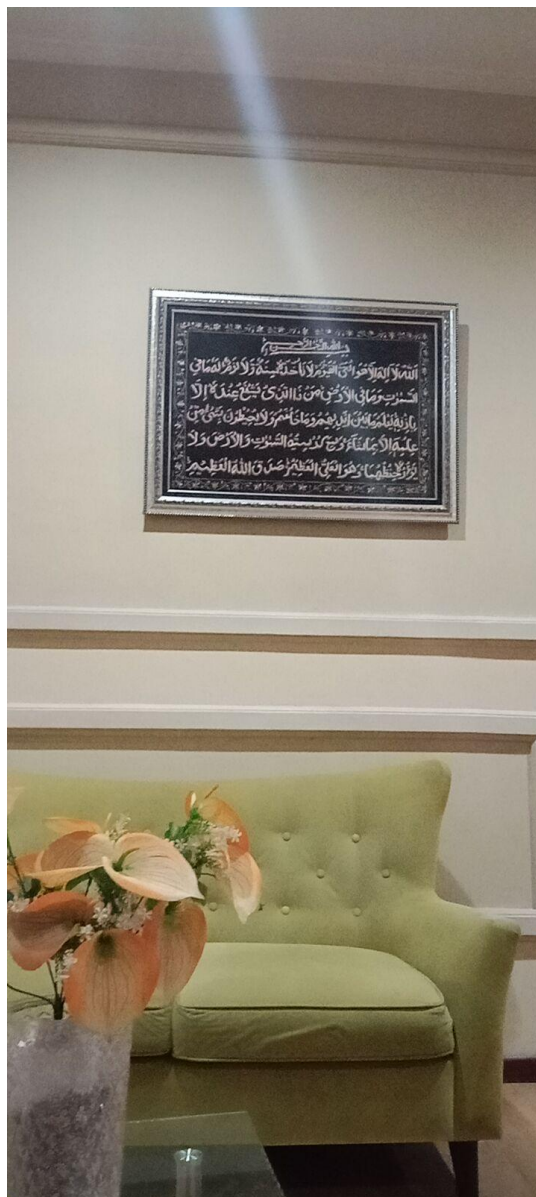 بسم الله الرحمن الرحيم
الله لا اله الا هو الحي القيوم لا تأخذه سنة ولا نوم له ما في
السموت وما في الارض من ذا الذي يشفع عنده الا
باذنه يعلم ما بين ايديهم وما خلفهم ولا يحيطون بشئ من
علمه الا بما شاء وسع كرسيه السموت والارض ولا
يؤده حفظهما وهو العلي العظيم صدق الله العظيم